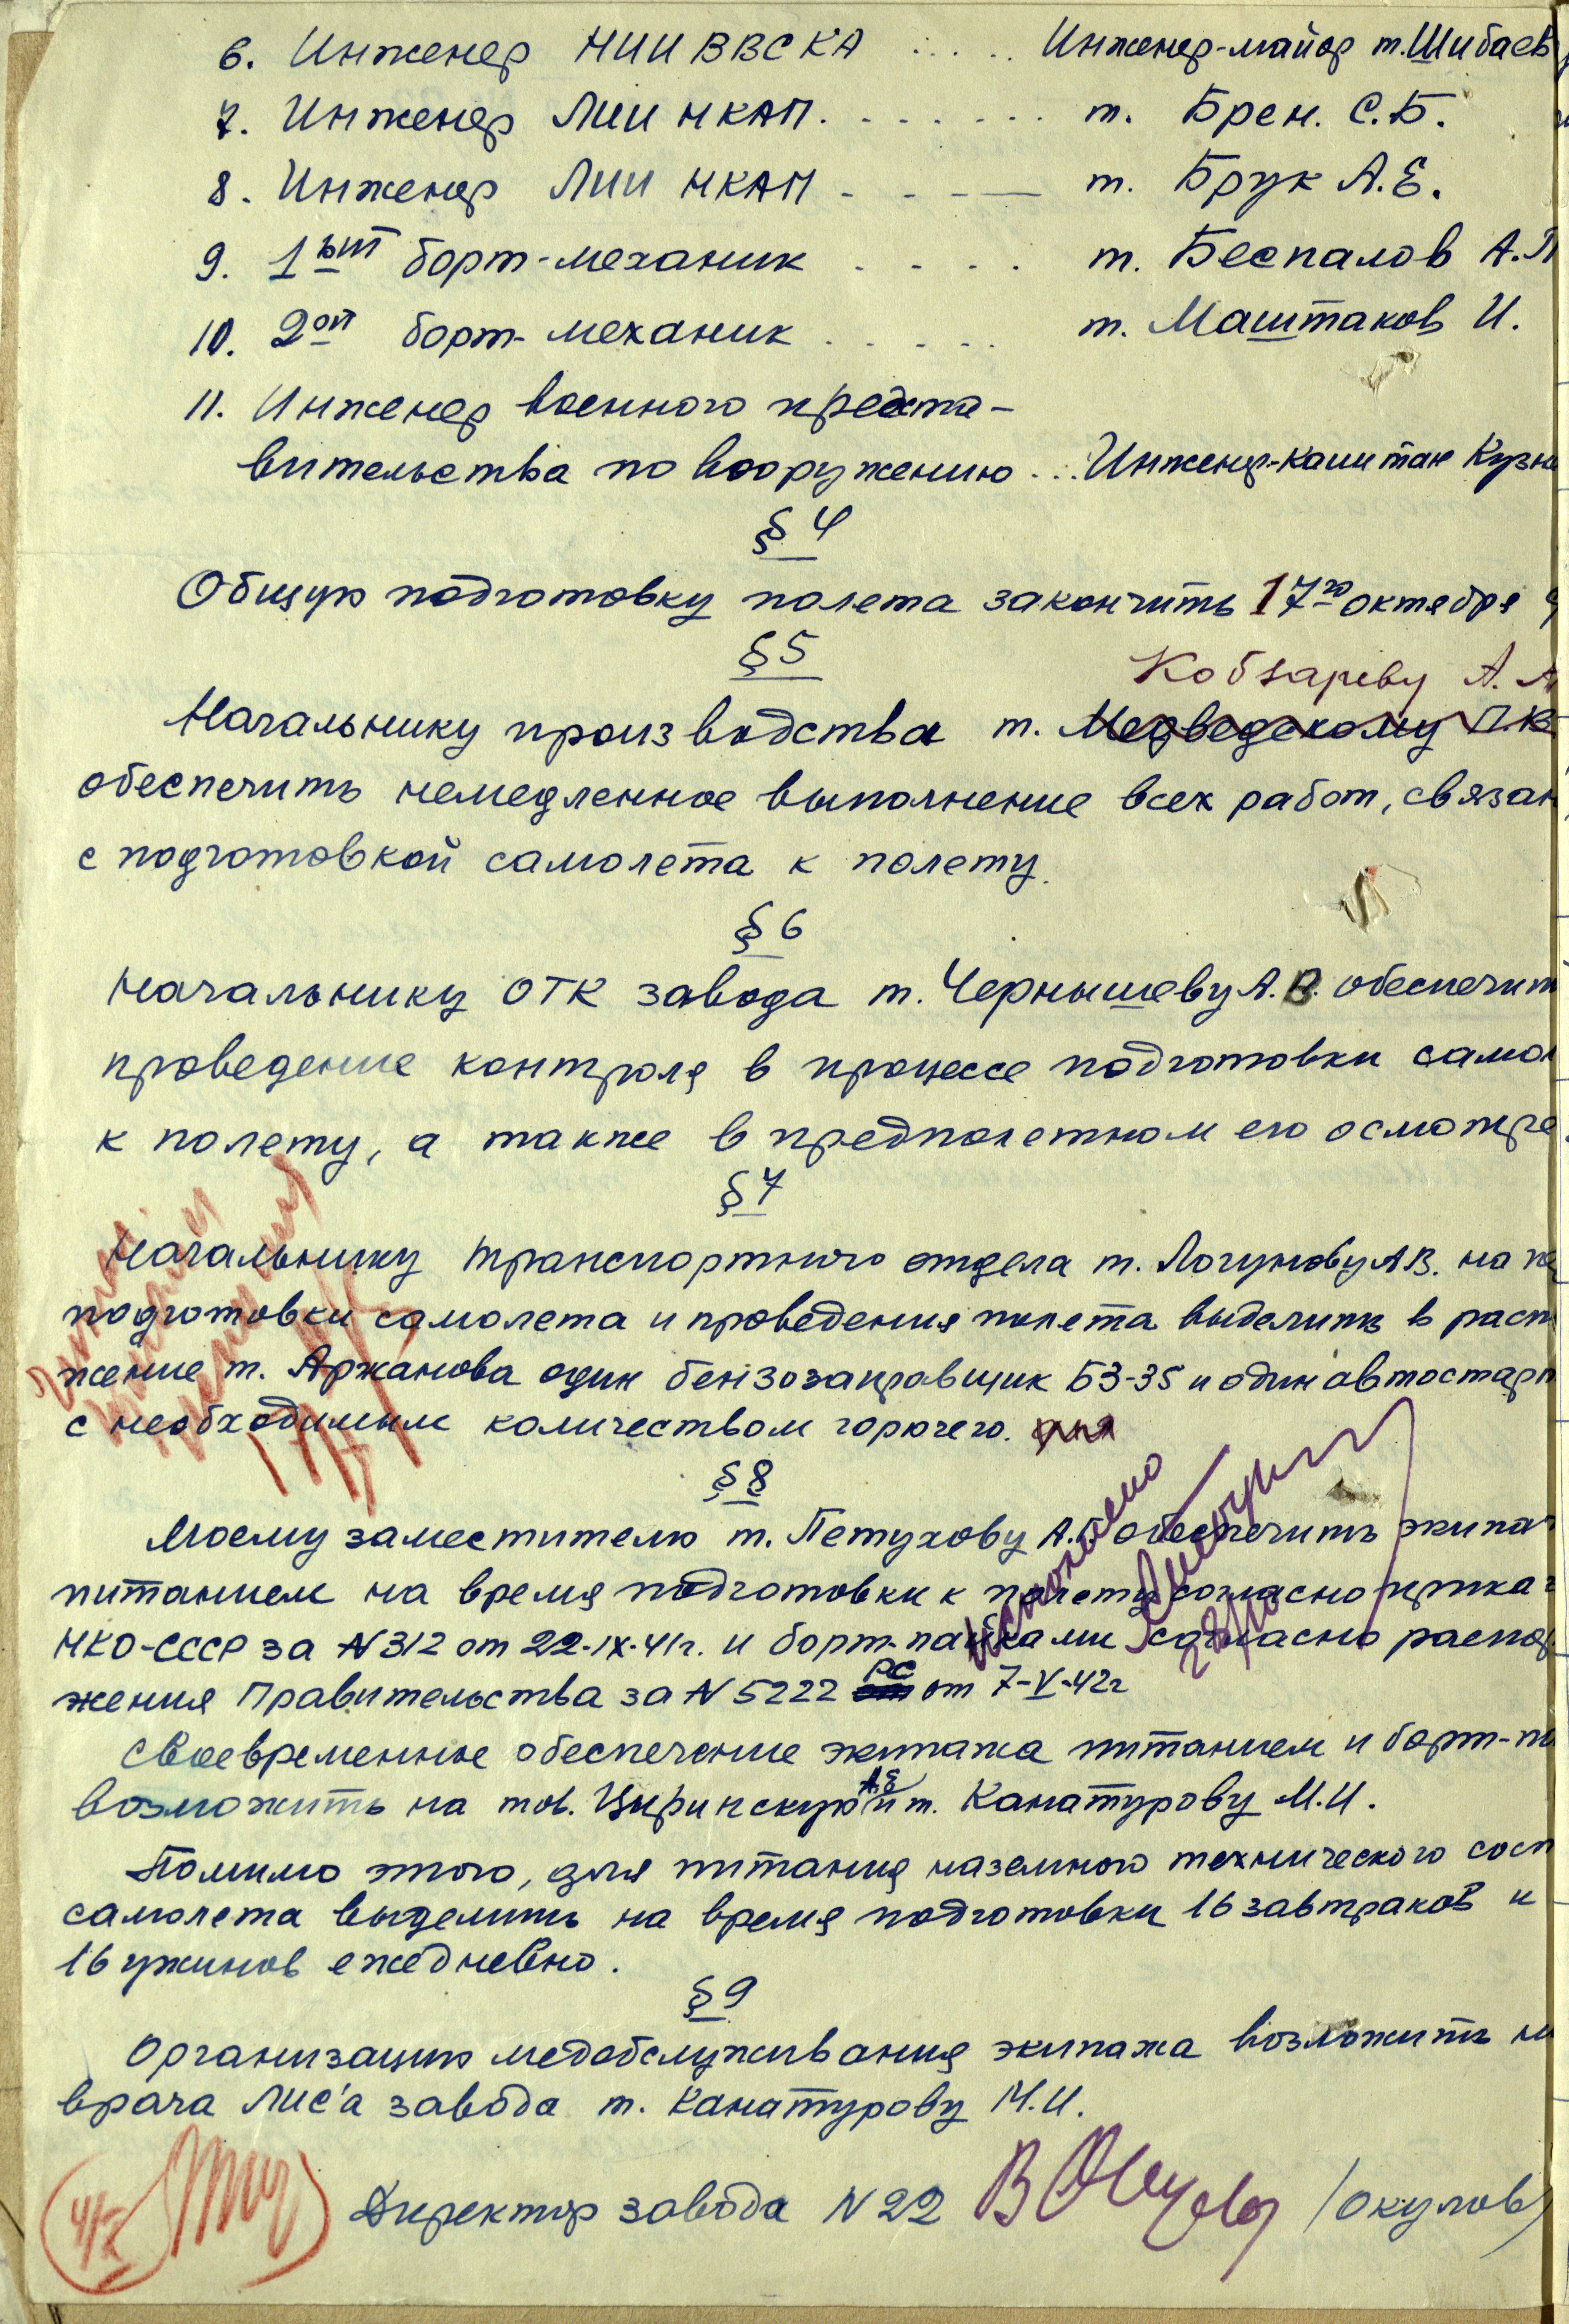 6. Инженер НИИ ВВС КА .... Инженер-майор т. Шибаев
7. Инженер ЛИИ НКАП. . . . . . . . т. Брен. С.Б.
8. Инженер ЛИИ НКАП - - - — т. Брук А.Е.
9. 1ый борт-механик . . . . т. Беспалов А.П
10. 2ой борт-механик . . . . . т. Маштаков И.
11. Инженер военного предста-
вительства по вооружению ... Инженер-капитан Кузн
§ 4
Общую подготовку полета закончить 17го октября
§ 5
Кобзареву А. А
Начальнику производства т. Медведскому П.В
обеспечить немедленное выполнение всех работ, связан
с подготовкой самолета к полету.
§ 6
Начальнику ОТК завода т. Чернышеву А.В. обеспечит
проведение контроля в процессе подготовки самол
к полету, а также в предполетном его осмотре
§ 7
Начальнику транспортного отдела т. Логунову А.В. на
подготовки самолета и проведения полета выделить в расп
жение т. Аржанова один бензозаправщик БЗ-35 и один автостарт
с необходимым количеством горючего. для
§ 8
Моему заместителю т. Петухову А.Г обеспечить экипа
питанием на время подготовки к полету согласно прика
НКО-СССР за N 312 от 22-IX-41г. и борт-пайками согласно распор
жения Правительства за N 5222 РС от 7-V-42г
Исполнено
Своевременное обеспечение экипажа питанием и борт-па
возложить на тов. Цыринскую А.Е и т. Канатурову М.И.
Помимо этого, для питания наземного технического сост
самолета выделить на время подготовки 16 завтраков и
16 ужинов ежедневно.
§ 9
Организацию медобслуживания экипажа возложить н
врача ЛИС'а завода т. Канатурову М.И.
Директор завода N 22 /Окулов/